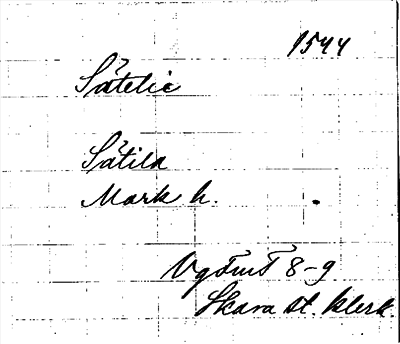 1544
Såtelie
Såtila
Mark h.
VgFmT 8-9
Skara st. klerk.